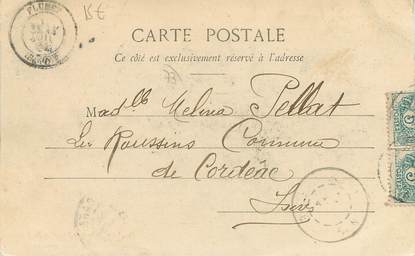 15€
CARTE POSTALE
Ce côté est exclusivement réservé à l'adresse
Madlle Melina Pellat
Les Roussins Commune
de Cordéac
Isère